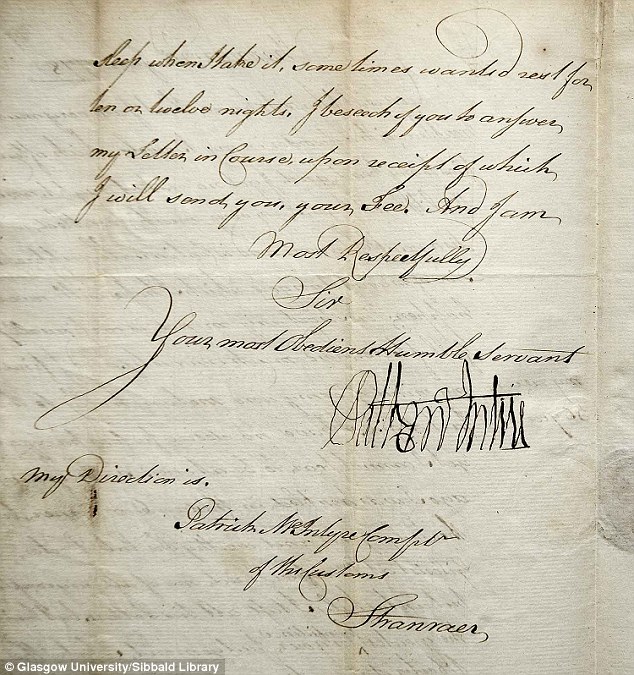 sleep when I take it, some times wants rest for
ten or twelve nights. I beseech you to answer
my Letter in Course, upon receipt of which
I will send you, your Fee. And I am
Most Respectfully
Sir
Your most Obedient Humble Servant
My Direction is.
Patrick McIntyre Complr
of the Customs
Stranraer
© Glasgow University/Sibbald Library